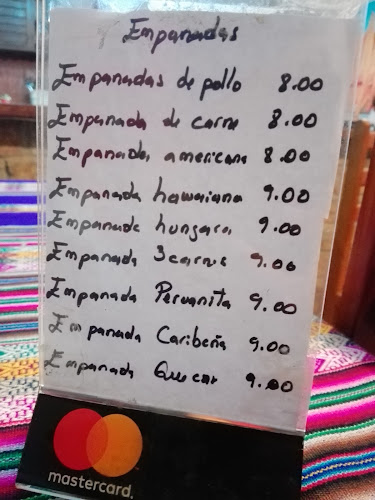 Empanadas
Empanadas de pollo 8.00
Empanada de carne 8.00
Empanadas americana 8.00
Empanada hawaiana 9.00
Empanada hungara 9.00
Empanada 3 carne 9.00
Empanada Peruanita 9.00
Empanada Caribeña 9.00
Empanada 9.00
mastercard.